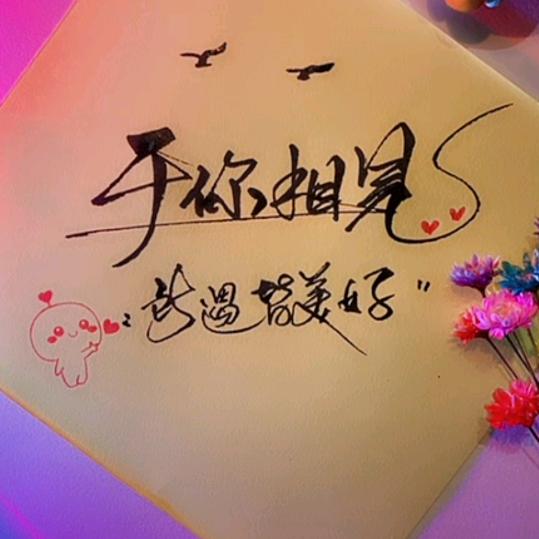 于你相见
所遇皆美好"